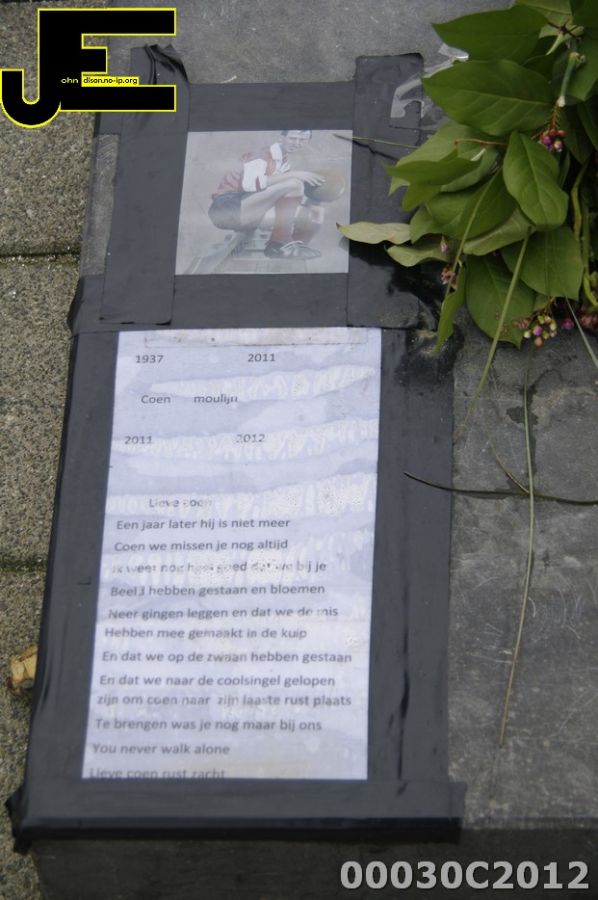 JE
ohn dison.no-ip.org
1937 2011
Coen moulijn
2011 2012
Lieve coen
Een jaar later hij is niet meer
Coen we missen je nog altijd
Ik weet nog heel goed dat we bij je
Beeld hebben gestaan en bloemen
Neer gingen leggen en dat we de mis
Hebben mee gemaakt in de kuip
En dat we op de zwaan hebben gestaan
En dat we naar de coolsingel gelopen
zijn om coen naar zijn laaste rust plaats
Te brengen was je nog maar bij ons
You never walk alone
Lieve coen rust zacht
00030C2012